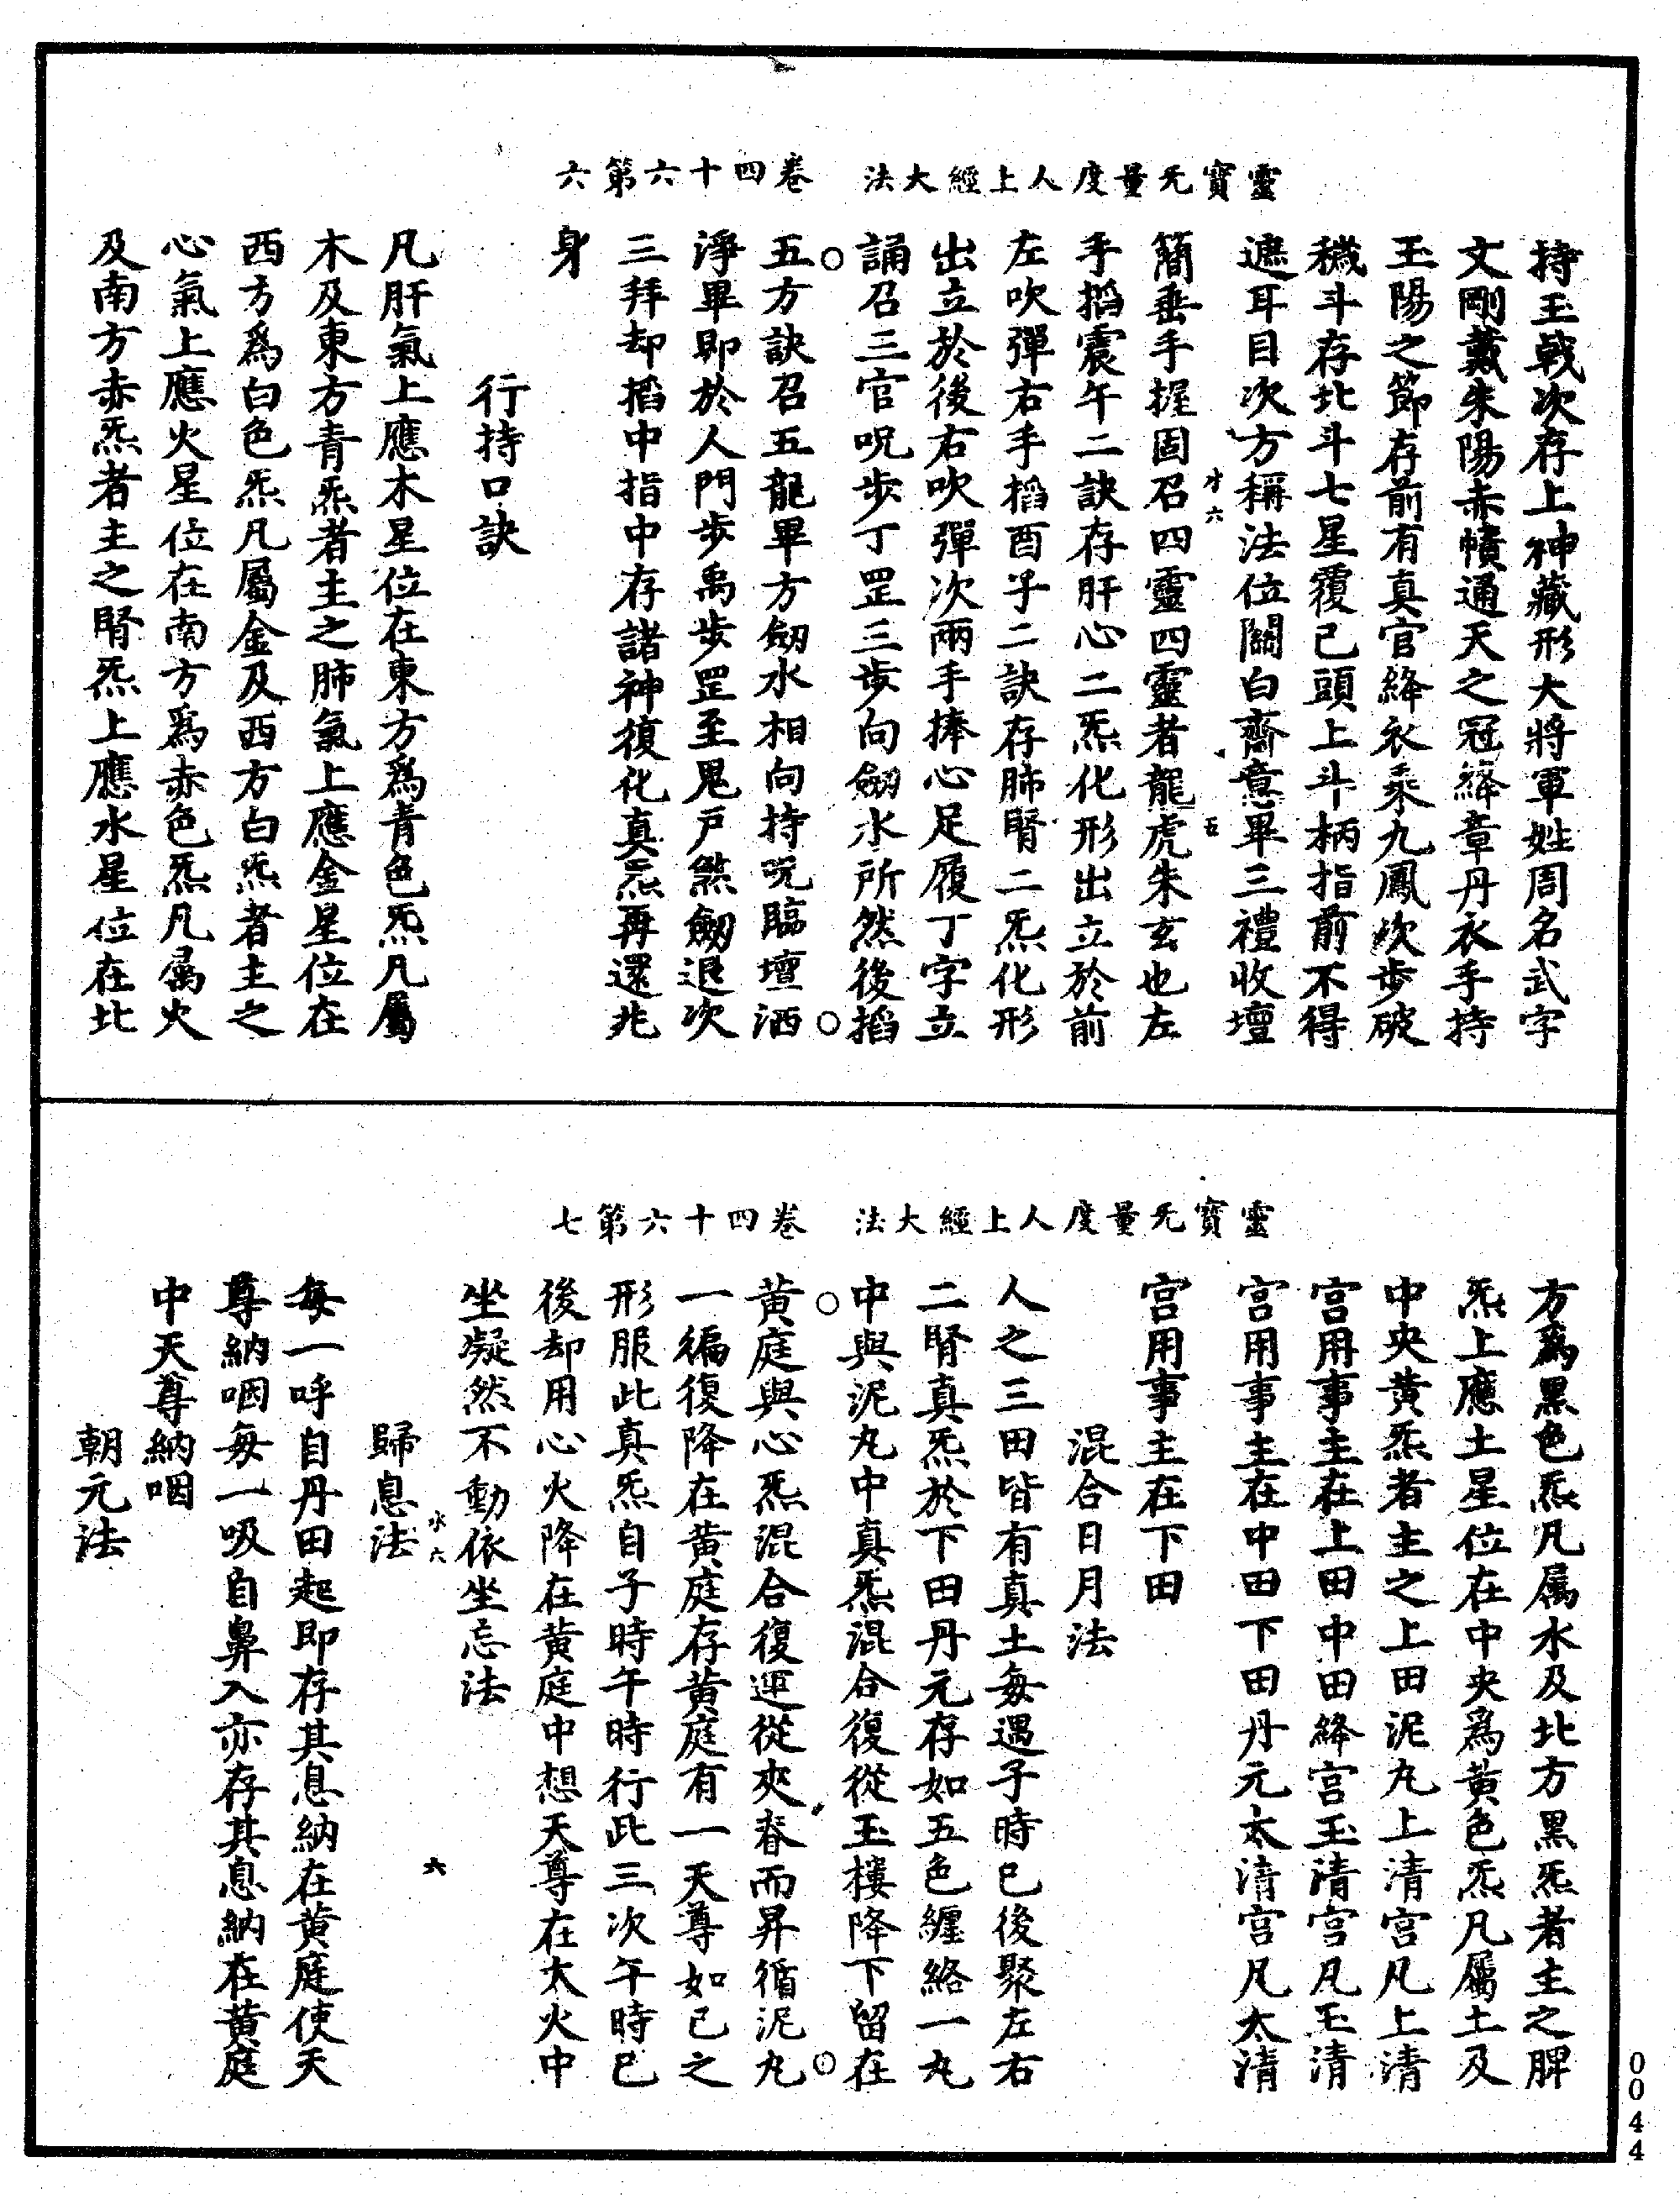 靈寶旡量度人上經大法　卷四十六第六
持玉戟次存上神藏形大將軍姓周名武字
文剛戴朱陽赤幘通天之冠絳章丹衣手持
玉陽之節存前有真官絳衣乘九鳳次步破
穢斗存北斗七星覆己頭上斗柄指前不得
遮耳目次方稱法位關白齋意畢三禮收壇
才六　五
簡垂手握固召四靈四靈者龍虎朱玄也左
手搯震午二訣存肝心二炁化形出立於前
左吹彈右手搯酉子二訣存肺腎二炁化形
出立於後右吹彈次兩手捧心足履丁字立
誦召三官呪步丁罡三步向劒水所然後搯
五方訣召五龍畢方劒水相向持呪臨壇洒
淨畢即於人門步禹步罡至鬼戶煞劒退次
三拜却搯中指中存諸神復化真炁再還兆
身
行持口訣
凡肝氣上應木星位在東方爲青色炁凡屬
木及東方青炁者主之肺氣上應金星位在
西方爲白色炁凡屬金及西方白炁者主之
心氣上應火星位在南方爲赤色炁凡属火
及南方赤炁者主之腎炁上應水星位在北
靈寶旡量度人上經大法　卷四十六第七
方爲黑色炁凡属水及北方黑炁者主之脾
炁上應土星位在中央爲黄色炁凡屬土及
中央黄炁者主之上田泥丸上清宫凡上清
宫用事主在上田中田絳宫玉清宫凡玉清
宫用事主在中田下田丹元太清宫凡太清
宫用事主在下田
混合日月法
人之三田皆有真土每遇子時巳後聚左右
二腎真炁於下田丹元存如五色纏絡一丸
中與泥丸中真炁混合復從玉樓降下留在
黄庭與心炁混合復運從夾脊而昇循泥丸
一徧復降在黄庭存黄庭有一天尊如己之
形服此真炁自子時午時行此三次午時巳
後却用心火降在黄庭中想天尊在太火中
坐凝然不動依坐忘法
水六　六
歸息法
每一呼自丹田起即存其息納在黄庭使天
尊納咽每一吸自鼻入亦存其息納在黄庭
中天尊納咽
朝元法
0044